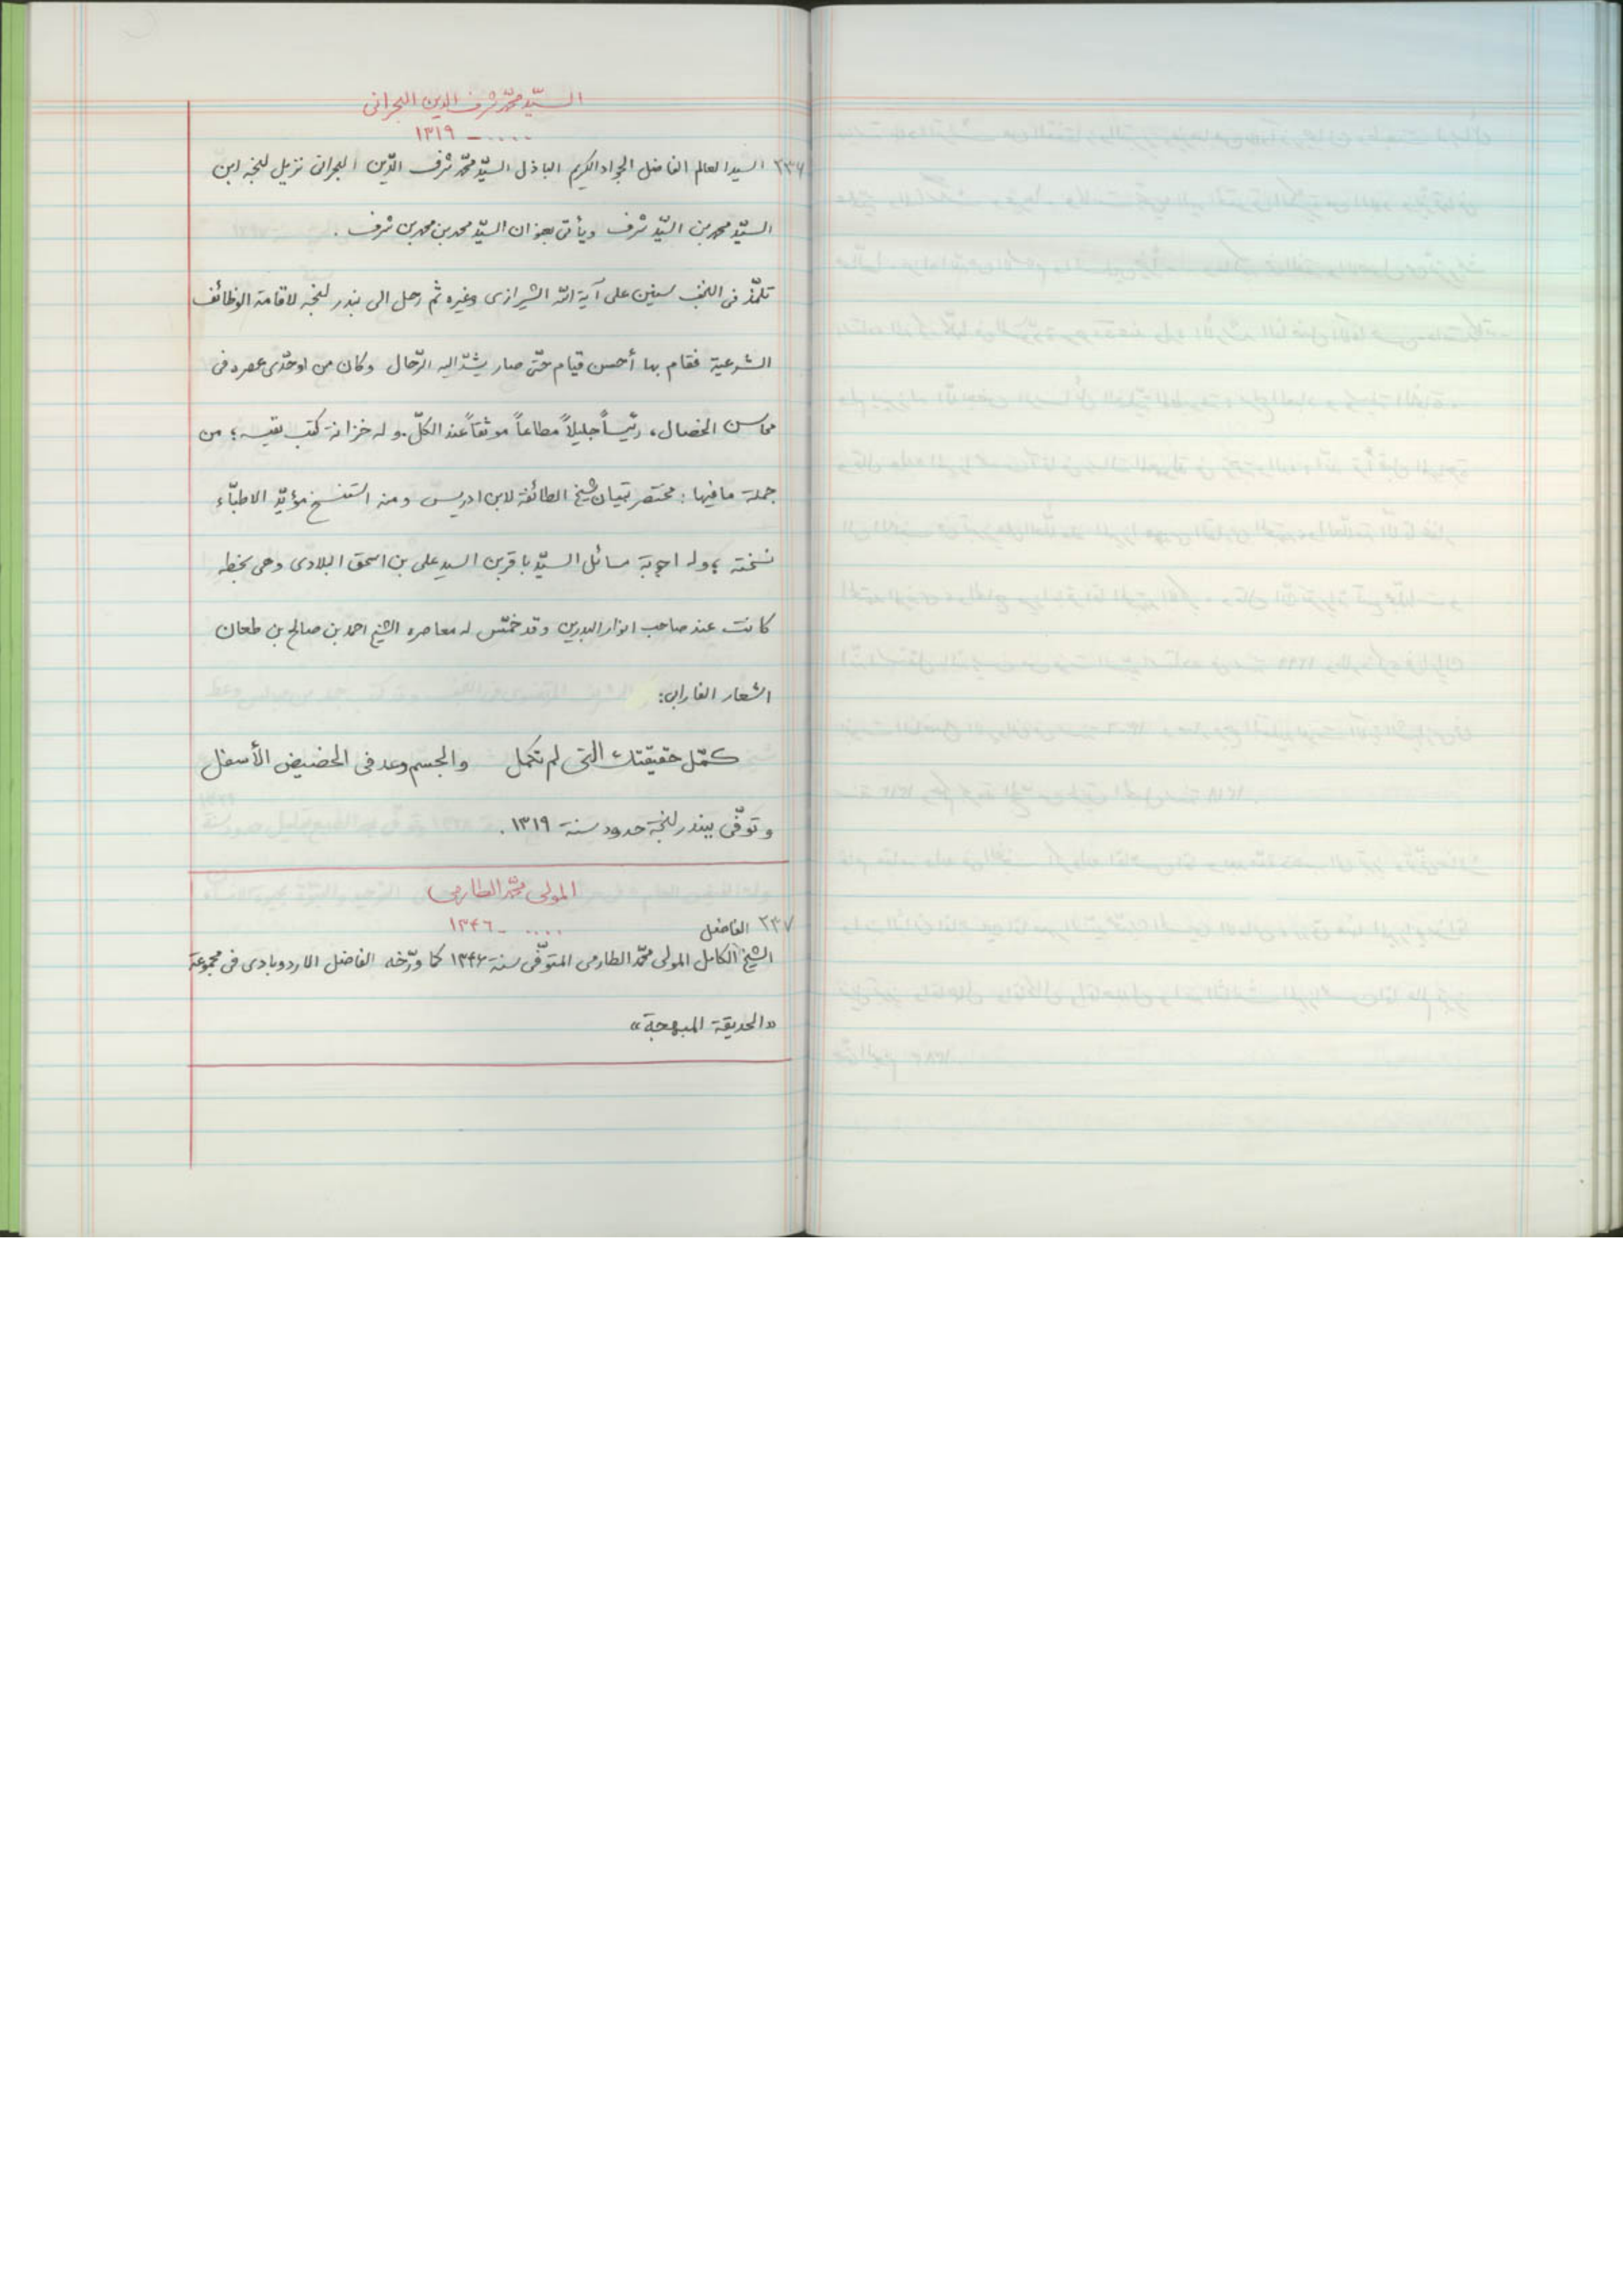 السيّد محمّد شرف الدين البحرانى
١٣١٩ - ....
٢٣٦ السيد العالم الفاضل الجواد الكريم الباذل السيّد محمّد شرف الدّين البحرانى نزيل لنجه ابن
السيّد محمد بن السّيد شرف ويأتى بعنوان السيّد محمد بن محمد بن شرف .
تلمّذ فى النجف سنين على آية اللّه الشيرازى وغيره ثم رحل الى بندر لنجه لاقامة الوظائف
الشرعية فقام بها أحسن قيام حتّى صار يشدّ اليه الرّحال وكان من اوحّدى عصره فى
محاسن الخصال، رئيساً جليلاً مطاعاً موثقاً عند الكلّ. وله خزانة كتب نفيسه ؛ من
جملة ما فيها : مختصر تبيان شيخ الطائفة لابن ادريس ومنه استنسخ مؤيّد الاطبّاء
نسخته ؛ وله اجوبة مسائل السيّد باقر بن السيد على بن اسحق البلادى وهى بخطه
كانت عند صاحب انوار البدرين وقد خمّس له معاصره الشيخ احمد بن صالح بن طعان
اشعار الفارابى:
كمّل حقيقتك التى لم تكمل والجسم دعه فى الحضيض الأسفل
وتوفّى ببندر لنجة حدود سنة ١٣١٩ .
المولى محمّد الطارمى
١٣٤٦ - ....
٢٣٧ الفاضل
الشيخ الكامل المولى محمّد الطارمى المتوفّى سنة ١٣٤٦ كما ورّخه الفاضل الاردوبادى فى مجموعة
«الحديقة المبهجة»